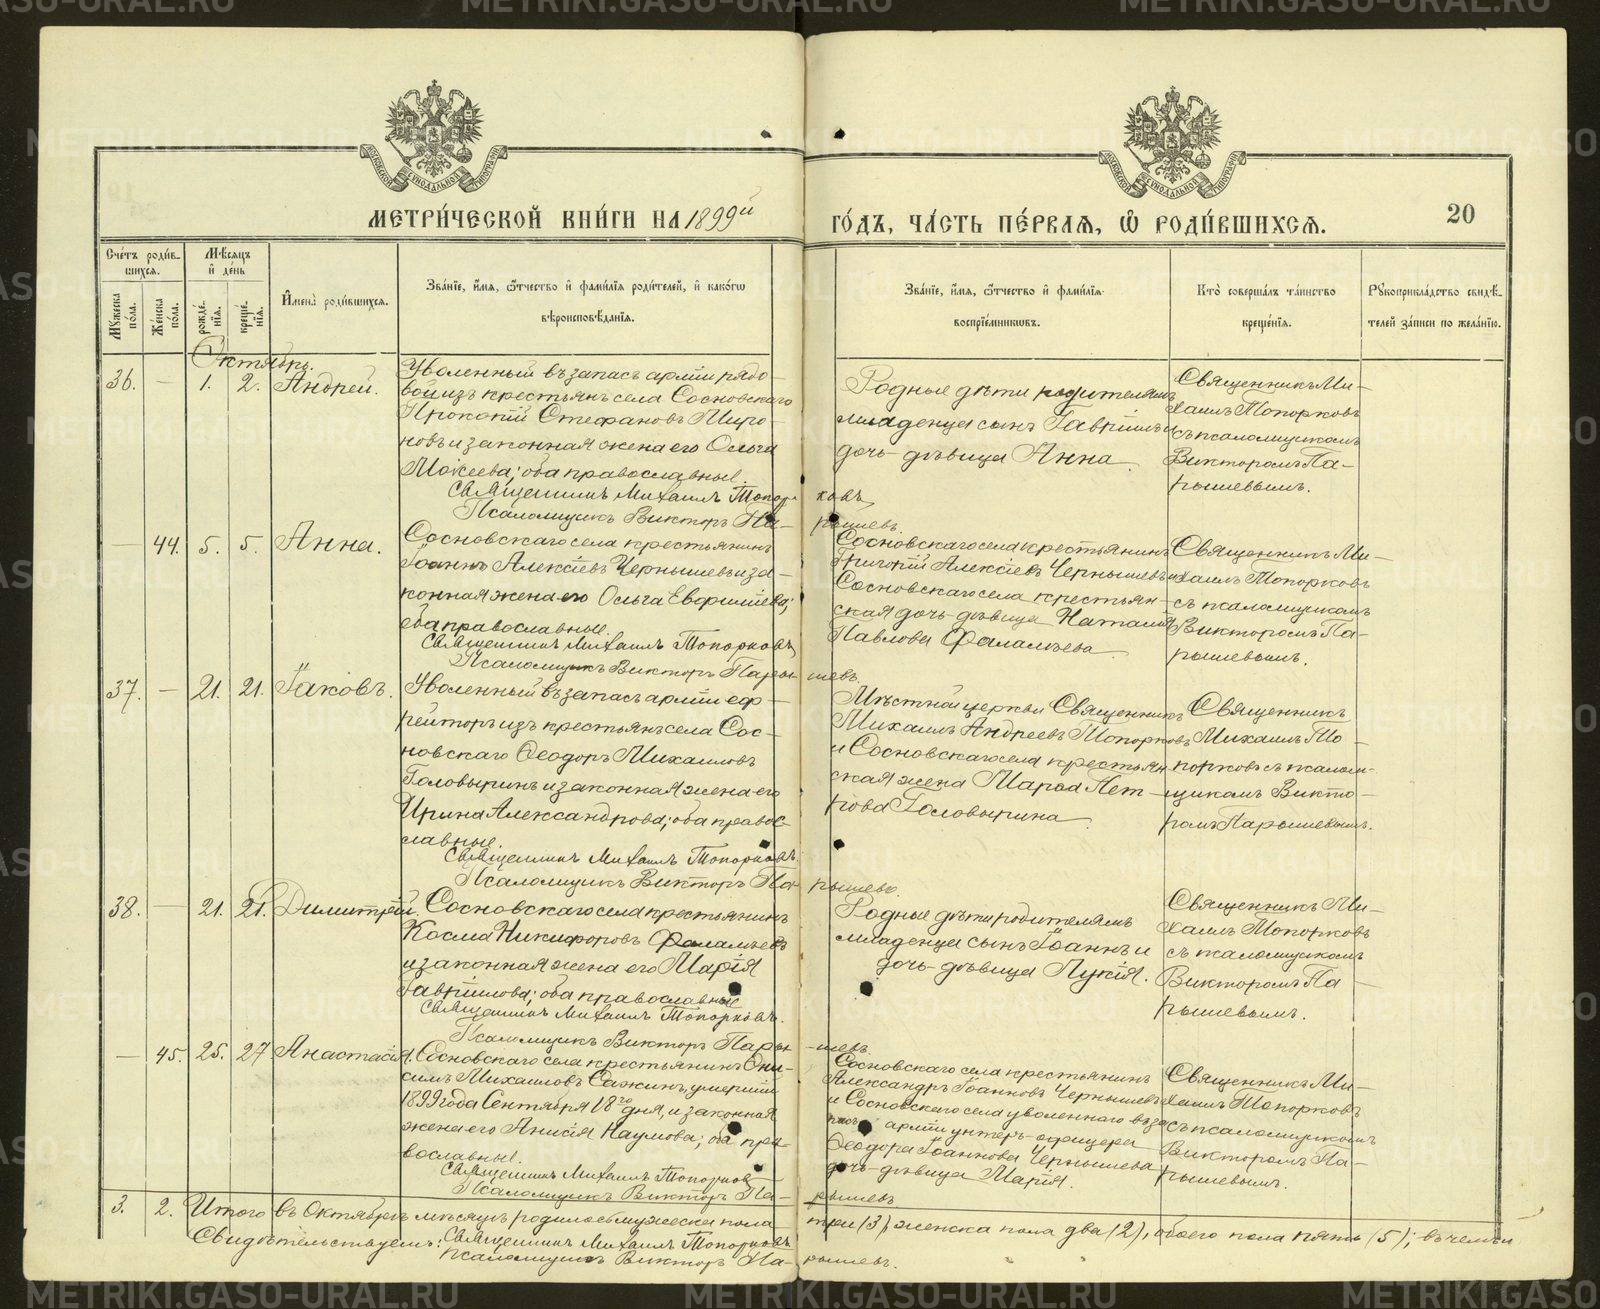 METRIKI.GASO-URAL.RU
МОСКОВСКОЙ СѴНОДАЛЬНОЙ ТИПОГРАФІИ
МЕТРИ́ЧЕСКОЙ КНИ́ГИ НА 1899й
ГО́ДЪ, ЧА́СТЬ ПЕ́РВАЯ, Ѽ РОДИ́ВШИХСЯ.
20
Сче́тъ роди́вшихся.
Му́жеска по́ла.
Же́нска по́ла.
Мѣ́сяцъ и҆ де́нь
рожде́нїя.
креще́нїя.
И҆мена̀ роди́вшихся.
Зва́нїе, и҆́мя, ѻ҆́тчество и҆ фами́лїя роди́телей, и҆ како́гѡ
вѣроисповѣ́данїя.
Зва́нїе, и҆́мя, ѻ҆́тчество и҆ фами́лїя
воспрїе́мникѡвъ.
Кто̀ соверша́лъ та́инство
креще́нїя.
Рꙋкоприкла́дство свидѣ́-
телей за́писи по жела́нїю.
Октябрь.
36. — 1. 2. Андрей.
Уволенный въ запасъ арміи рядо-
вой изъ крестьянъ села Сосновскаго
Прокопій Стефановъ Миро-
новъ и законная жена его Ольга
Мокеева; оба православные.
Священникъ Михаилъ Топорковъ
Псаломщикъ Викторъ Парышевъ.
Родные дѣти родителямъ
младенца сынъ Гавріилъ и
дочь-дѣвица Анна.
Священникъ Ми-
хаилъ Топорковъ
съ псаломщикомъ
Викторомъ Па-
рышевымъ.
— 44. 5. 5. Анна.
Сосновскаго села крестьянинъ
Іоаннъ Алексіевъ Чернышевъ и за-
конная жена его Ольга Евфиміева;
оба православные.
Священникъ Михаилъ Топорковъ
Псаломщикъ Викторъ Парышевъ.
Сосновскаго села крестьянинъ
Григорій Алексіевъ Чернышевъ и
Сосновскаго села крестьян-
ская дочь-дѣвица Наталія
Павлова Фаламѣева.
Священникъ Ми-
хаилъ Топорковъ
съ псаломщикомъ
Викторомъ Па-
рышевымъ.
37. — 21. 21. Іаковъ.
Уволенный въ запасъ арміи еф-
рейторъ изъ крестьянъ села Сос-
новскаго Ѳеодоръ Михаиловъ
Головыринъ и законная жена его
Ирина Александрова; оба правос-
лавные.
Священникъ Михаилъ Топорковъ
Псаломщикъ Викторъ Парышевъ.
Мѣстной церкви Священникъ
Михаилъ Андреевъ Топорковъ
и Сосновскаго села крестьян-
ская жена Марѳа Пет-
рова Головырина.
Священникъ
Михаилъ То-
порковъ съ псалом-
щикомъ Викто-
ромъ Парышевымъ.
38. — 21. 21. Димитрій.
Сосновскаго села крестьянинъ
Косма Никифоровъ Фаламѣевъ
и законная жена его Марія
Гавріилова; оба православные
Священникъ Михаилъ Топорковъ.
Псаломщикъ Викторъ Парышевъ.
Родные дѣти родителямъ
младенца сынъ Іоаннъ и
дочь-дѣвица Лукія.
Священникъ Ми-
хаилъ Топорковъ
съ псаломщикомъ
Викторомъ Па-
рышевымъ.
— 45. 25. 27 Анастасія.
Сосновскаго села крестьянинъ Они-
симъ Михаиловъ Сажинъ, умершій
1899 года Сентября 18го дня, и законная
жена его Анисія Наумова; оба пра-
вославные.
Священникъ Михаилъ Топорковъ
Псаломщикъ Викторъ Парышевъ
Сосновскаго села крестьянинъ
Александръ Іоанновъ Чернышевъ
и Сосновскаго села уволеннаго въ за-
пасъ арміи унтеръ-офицера
Ѳеодора Іоаннова Чернышева
дочь-дѣвица Марія.
Священникъ Ми-
хаилъ Топорковъ
съ псаломщикомъ
Викторомъ Па-
рышевымъ.
3. 2. Итого въ Октябрѣ мѣсяцѣ родилось мужеска пола три (3), женска пола два (2), обоего пола пять (5); въ чемъ и
Свидѣтельствуемъ: Священникъ Михаилъ Топорковъ
Псаломщикъ Викторъ Парышевъ.